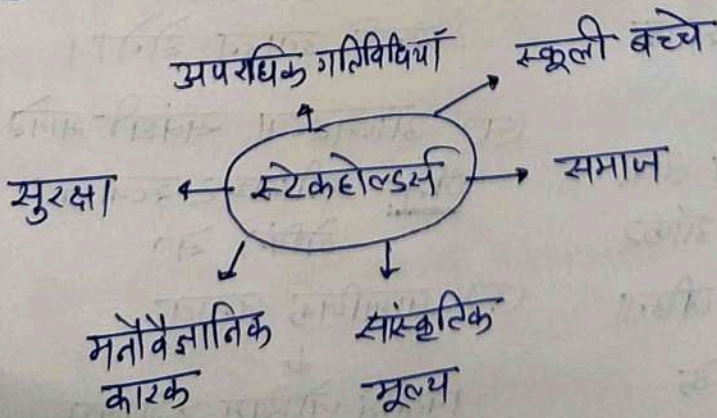 अपराधिक गतिविधियाँ
स्कूली बच्चे
सुरक्षा
स्टेकहोल्डर्स
समाज
मनोवैज्ञानिक
कारक
सांस्कृतिक
मूल्य